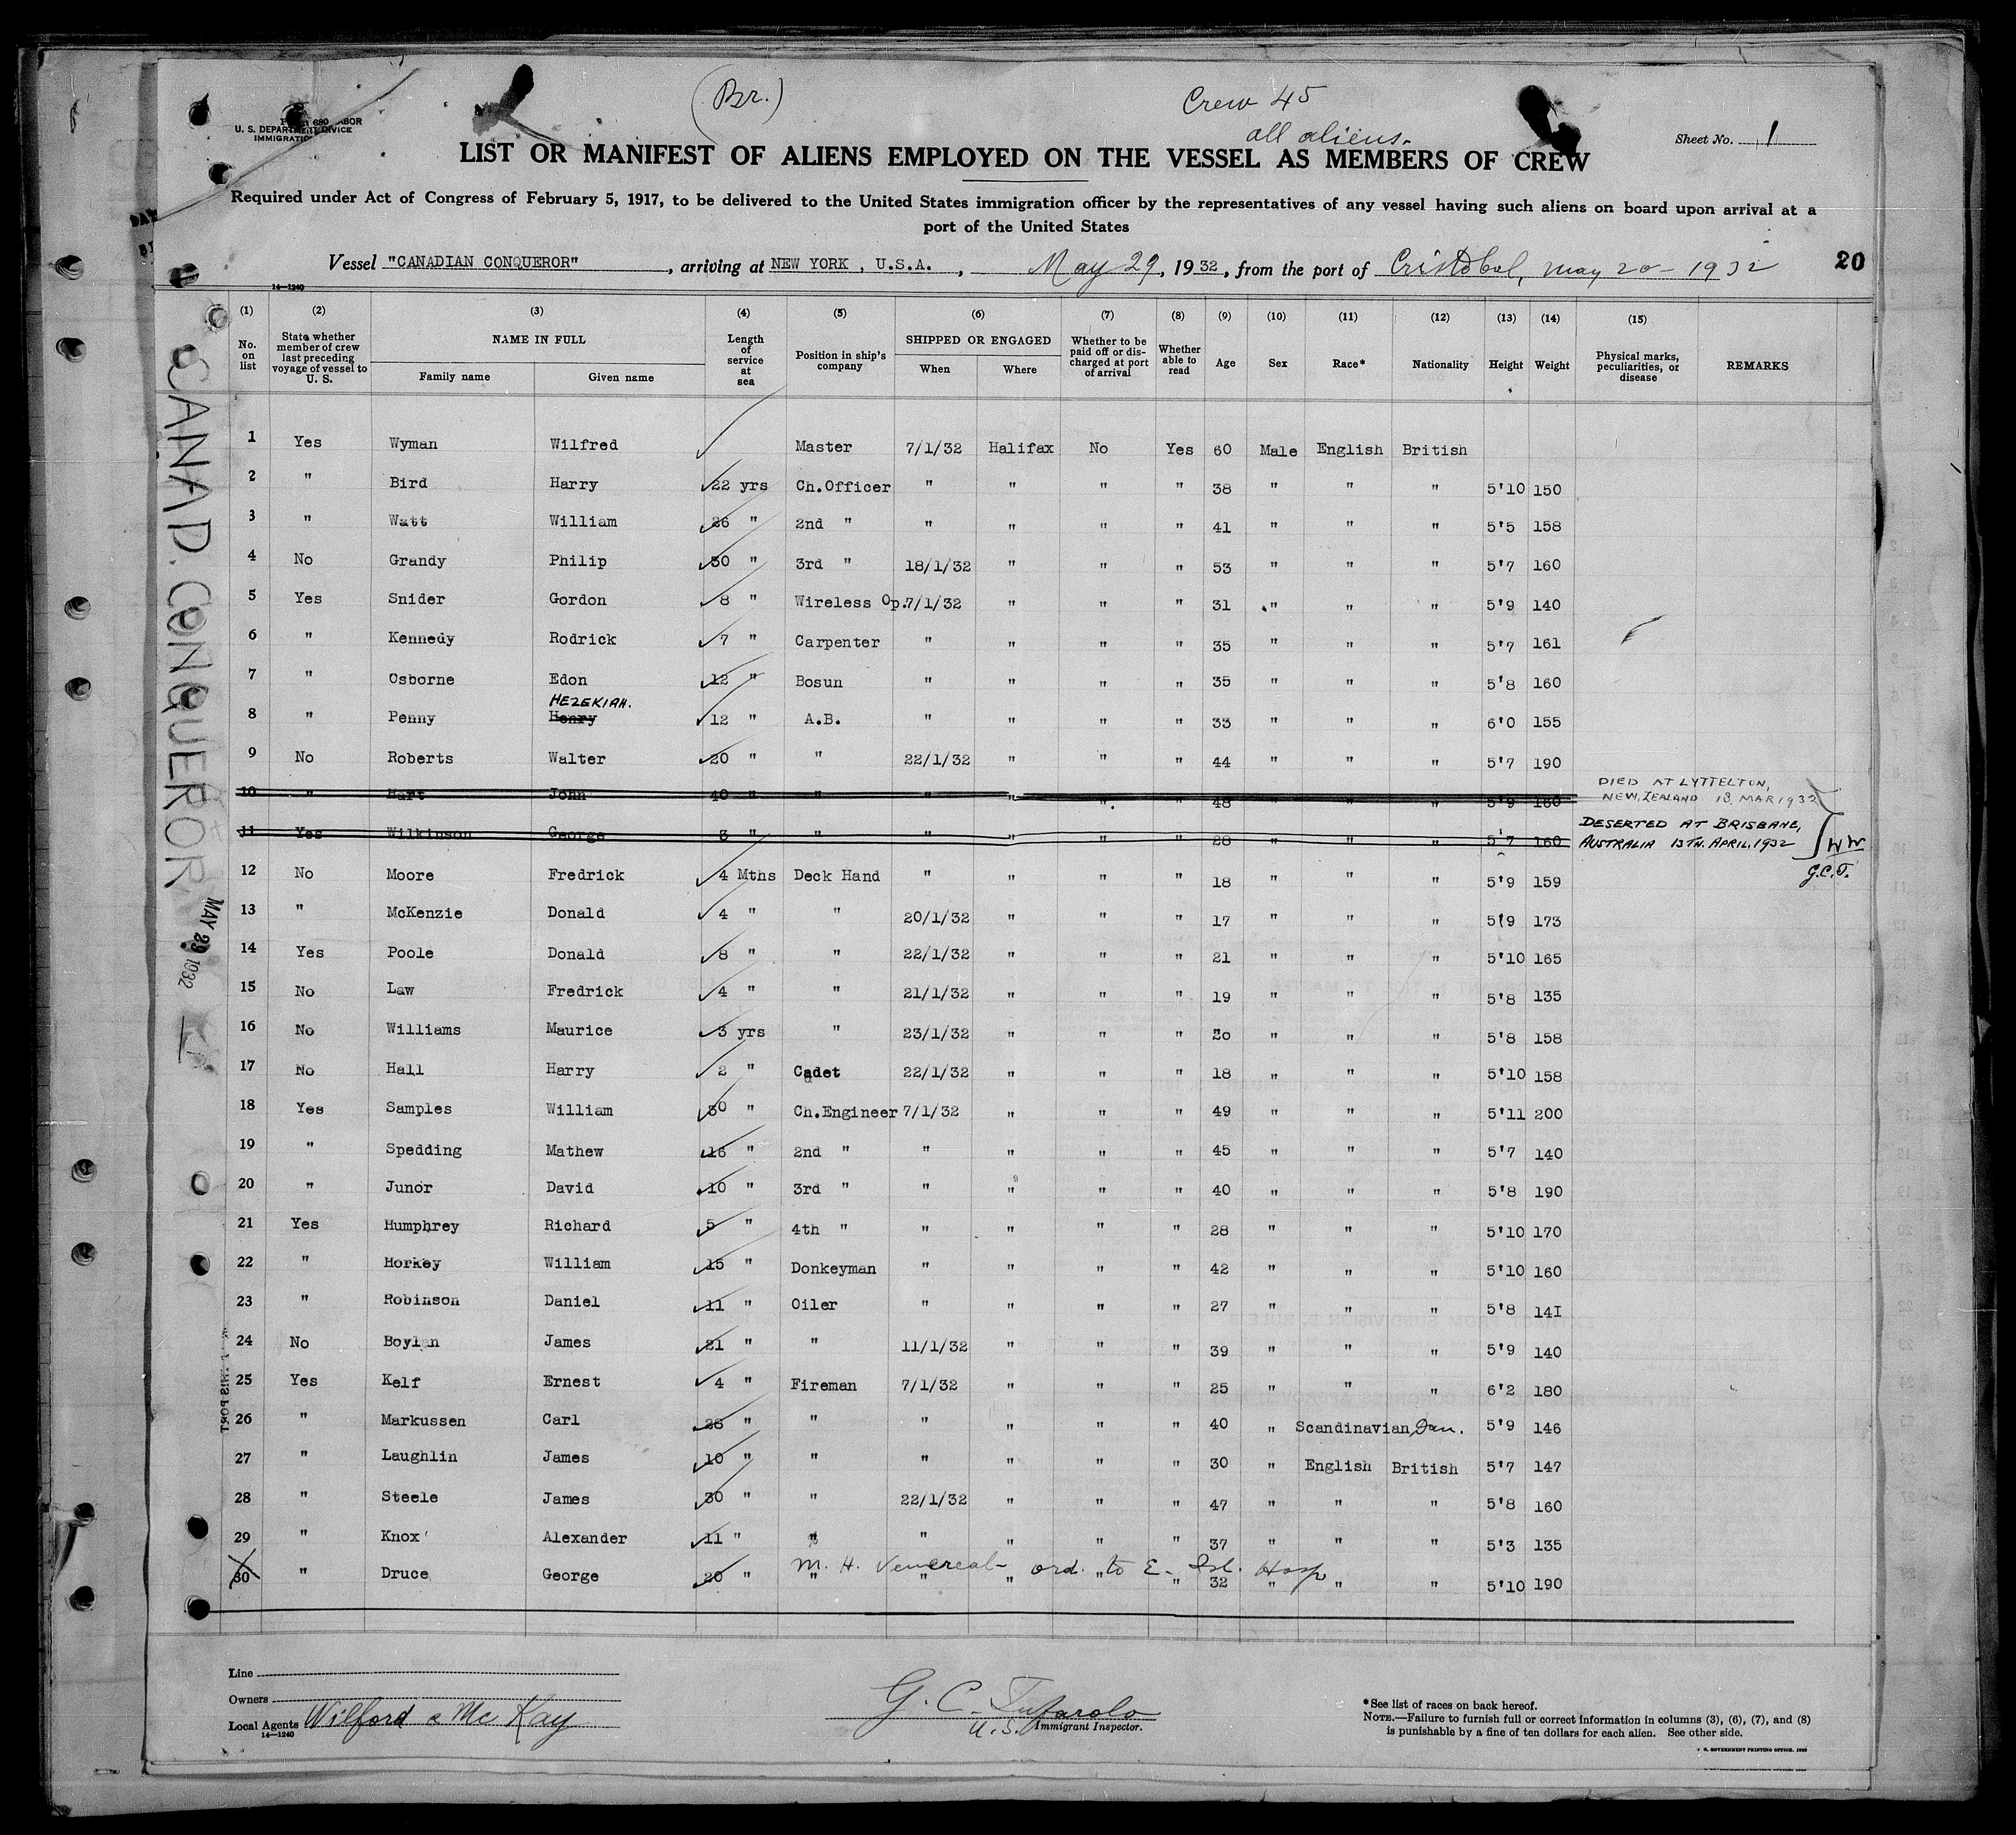 (Br.)
Crew 45
all aliens.
U. S. DEPARTMENT LABOR
IMMIGRATION SERVICE
Sheet No. 1
LIST OR MANIFEST OF ALIENS EMPLOYED ON THE VESSEL AS MEMBERS OF CREW
Required under Act of Congress of February 5, 1917, to be delivered to the United States immigration officer by the representatives of any vessel having such aliens on board upon arrival at a
port of the United States
Vessel "CANADIAN CONQUEROR", arriving at NEW YORK, U.S.A., May 29, 1932, from the port of Cristobal, May 20 - 1932
20
14—1240
(1) (2) (3) (4) (5) (6) (7) (8) (9) (10) (11) (12) (13) (14) (15)
No. on list | State whether member of crew last preceding voyage of vessel to U. S. | NAME IN FULL | Family name | Given name | Length of service at sea | Position in ship's company | SHIPPED OR ENGAGED | When | Where | Whether to be paid off or discharged at port of arrival | Whether able to read | Age | Sex | Race* | Nationality | Height | Weight | Physical marks, peculiarities, or disease | REMARKS
1 Yes Wyman Wilfred Master 7/1/32 Halifax No Yes 60 Male English British
2 " Bird Harry 22 yrs Ch.Officer " " " " 38 " " " 5'10 150
3 " Watt William 26 " 2nd " " " " " 41 " " " 5'5 158
4 No Grandy Philip 30 " 3rd " 18/1/32 " " " 53 " " " 5'7 160
5 Yes Snider Gordon 8 " Wireless Op. 7/1/32 " " " 31 " " " 5'9 140
6 " Kennedy Rodrick 7 " Carpenter " " " " 35 " " " 5'7 161
7 " Osborne Edon 12 " Bosun " " " " 35 " " " 5'8 160
HEZEKIAH.
8 " Penny Henry 12 " A.B. " " " " 33 " " " 6'0 155
9 No Roberts Walter 20 " " 22/1/32 " " " 44 " " " 5'7 190
10 " Hart John 40 " " " " " " 48 " " " 5'9 160 DIED AT LYTTELTON, NEW ZEALAND 18. MAR 1932
11 Yes Wilkinson George 3 " " " " " " 28 " " " 5'7 160 DESERTED AT BRISBANE, AUSTRALIA 13TH. APRIL, 1932
WW
G.C.T.
12 No Moore Fredrick 4 Mths Deck Hand " " " " 18 " " " 5'9 159
13 " McKenzie Donald 4 " " 20/1/32 " " " 17 " " " 5'9 173
14 Yes Poole Donald 8 " " 22/1/32 " " " 21 " " " 5'10 165
15 No Law Fredrick 4 " " 21/1/32 " " " 19 " " " 5'8 135
16 No Williams Maurice 3 yrs " 23/1/32 " " " 20 " " " 5'8 158
17 No Hall Harry 2 " Cadet 22/1/32 " " " 18 " " " 5'10 158
18 Yes Samples William 30 " Ch.Engineer 7/1/32 " " " 49 " " " 5'11 200
19 " Spedding Mathew 16 " 2nd " " " " " 45 " " " 5'7 140
20 " Junor David 10 " 3rd " " " " " 40 " " " 5'8 190
21 Yes Humphrey Richard 5 " 4th " " " " " 28 " " " 5'10 170
22 " Horkey William 15 " Donkeyman " " " " 42 " " " 5'10 160
23 " Robinson Daniel 11 " Oiler " " " " 27 " " " 5'8 14I
24 No Boylan James 21 " " 11/1/32 " " " 39 " " " 5'9 140
25 Yes Kelf Ernest 4 " Fireman 7/1/32 " " " 25 " " " 6'2 180
26 " Markussen Carl 26 " " " " " " 40 " Scandinavian Dan. 5'9 146
27 " Laughlin James 10 " " " " " " 30 " English British 5'7 147
28 " Steele James 30 " " 22/1/32 " " " 47 " " " 5'8 160
29 " Knox Alexander 11 " " " " " " 37 " " " 5'3 135
M. H. Venereal - ord. to E. Isl. Hosp
30 " Druce George 20 " " " " " " 32 " " " 5'10 190
CANAD. CONQUEROR
MAY 29 1932
Line
Owners
Local Agents Wilford & McKay
14—1240
G. C.
U. S. Immigrant Inspector.
*See list of races on back hereof.
NOTE.—Failure to furnish full or correct information in columns (3), (6), (7), and (8)
is punishable by a fine of ten dollars for each alien. See other side.
GOVERNMENT PRINTING OFFICE